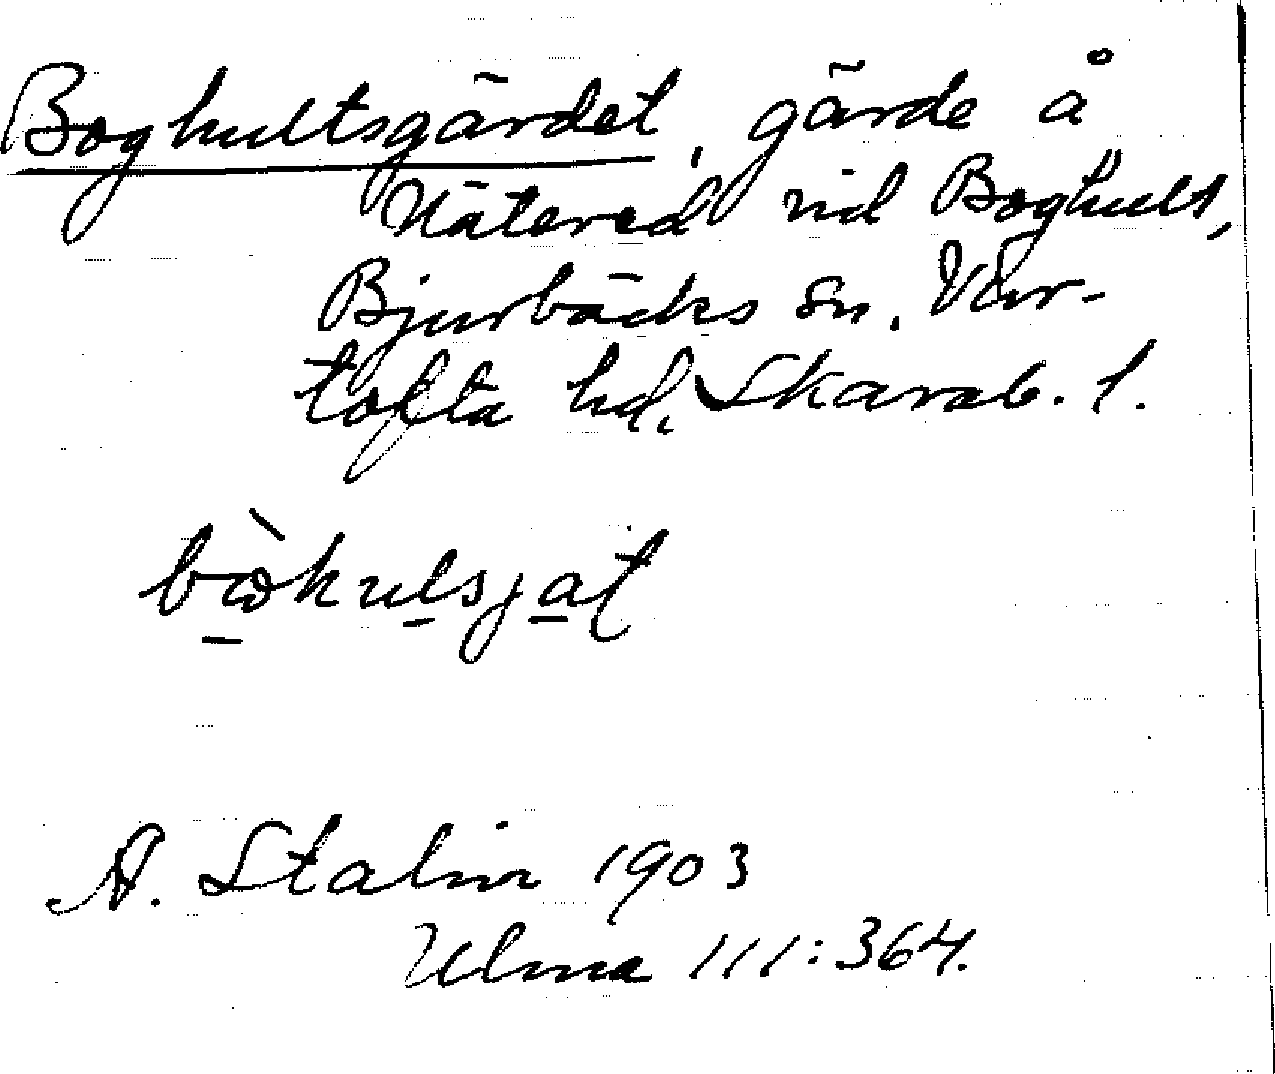 Boghultsgärdet, gärde å
Nätered vid Boghult,
Bjurbäcks sn. Var-
tofta hd, Skarab. l.
A. Stalin 1903
Ulma 111:364.